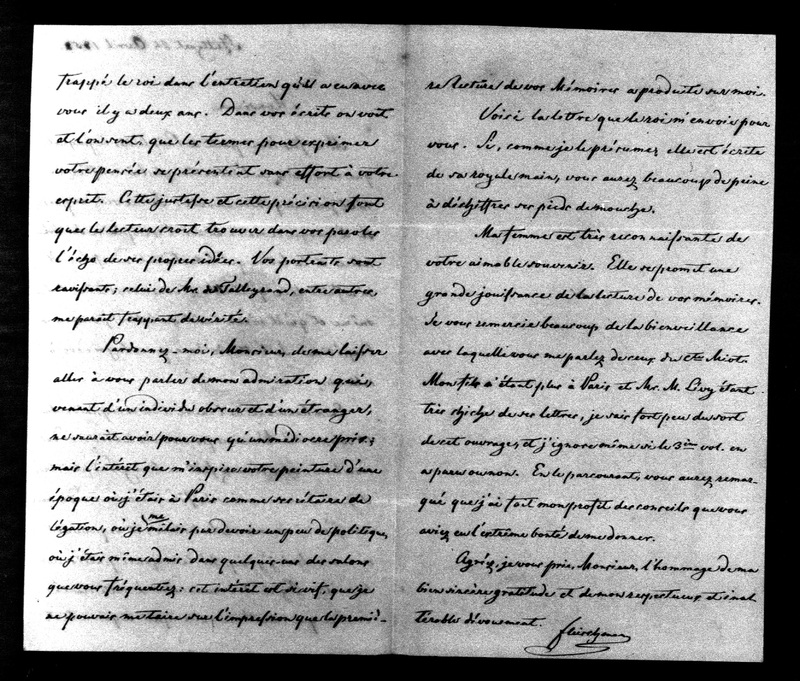 frappé le roi dans l'entretien qu'il a eu avec
vous il y a deux ans. Dans vos écrits on voit
et l'on sent, que les termes pour exprimer
votre pensée se présentent sans effort à votre
esprit. Cette justesse et cette précision font
que le lecteur croit trouver dans vos paroles
l'écho de ses propres idées. Vos portraits sont
ravissants; celui de Mr. de Talleyrand, entre autres
me parait frappant de vérité.
Pardonnez-moi, Monsieur, de me laisser
aller à vous parler de mon admiration qui,
venant d'un individu obscur et d'un étranger,
ne saurait avoir pour vous qu'un médiocre prix;
mais l'intérêt que m'inspire votre peinture d'une
époque où j'étais à Paris comme secrétaire de
légation, où je me mêlais par devoir un peu de politique,
où j'étais même admis dans quelques-uns des salons
que vous fréquentiez: cet intérêt est si vif, que je
ne pouvais me taire sur l'impression que la premiè-
re lecture de vos Mémoires a produite sur moi.
Voici la lettre que le roi m'envoie pour
vous. Si, comme je le présume, elle est écrite
de sa royale main, vous aurez beaucoup de peine
à déchiffrer ses pieds de mouche.
Ma femme est très reconnaissante de
votre aimable souvenir. Elle se promet une
grande jouissance de la lecture de vos mémoires.
Je vous remercie beaucoup de la bienveillance
avec laquelle vous me parlez de ceux du cte Miot.
Mon fils n'étant plus à Paris et Mr. M. Lévy étant
très chiche de ses lettres, je sais fort peu du sort
de cet ouvrage, et j'ignore même si le 3ème vol. en
a paru ou non. En le parcourant, vous aurez remar-
qué que j'ai fait mon profit des conseils que vous
aviez eu l'extrême bonté de me donner.
Agréez, je vous prie, Monsieur, l'hommage de ma
bien sincère gratitude et de mon respectueux et inal-
térable dévouement.
Fleischman